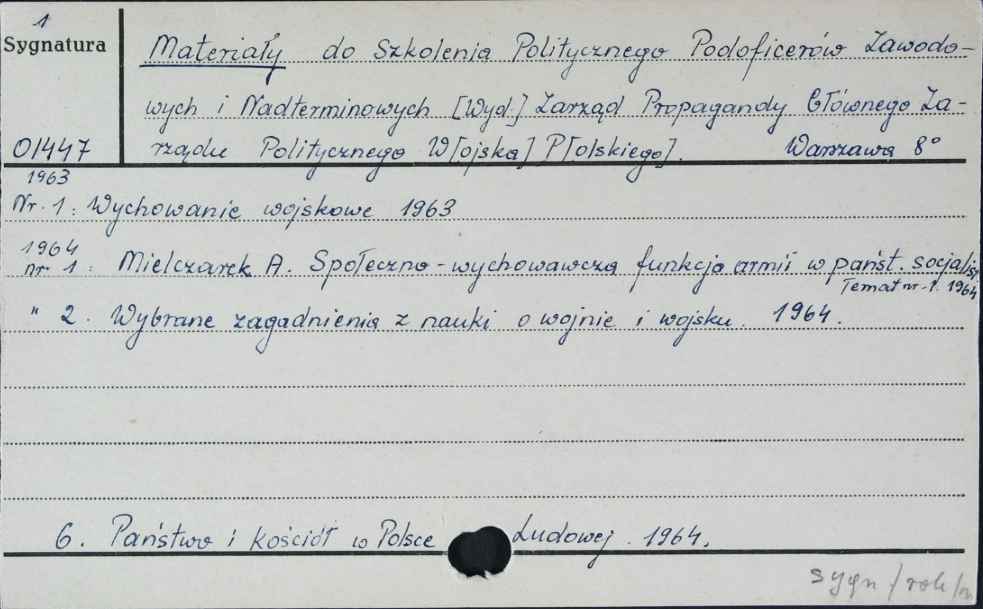 1
Sygnatura
Materiały do Szkolenia Politycznego Podoficerów Zawodo-
wych i Nadterminowych [Wyd.] Zarząd Propagandy Głównego Za-
01447 rządu Politycznego W[ojska] P[olskiego]. Warszawa 8°
1963
Nr. 1: Wychowanie wojskowe 1963
1964
nr 1: Mielczarek A. Społeczno-wychowawcza funkcja armii w państ. socjalist
Temat nr. 1. 1964
" 2. Wybrane zagadnienia z nauki o wojnie i wojsku. 1964.
6. Państwo i kościół w Polsce Ludowej. 1964.
sygn/rok/n